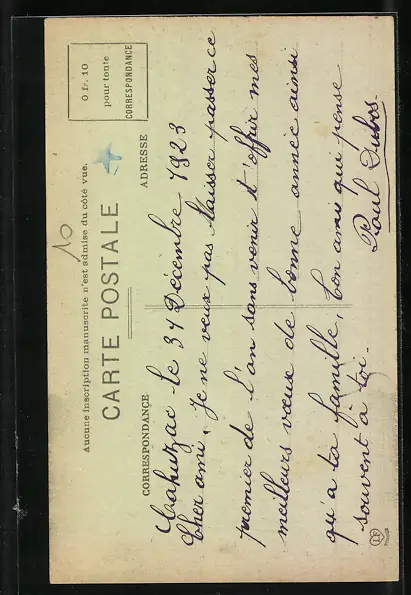 Aucune inscription manuscrite n'est admise du côté vue.
CARTE POSTALE
0 fr. 10
pour toute
CORRESPONDANCE
10
CORRESPONDANCE
ADRESSE
Cahuzac le 31 Décembre 1923
Cher ami, Je ne veux pas laisser passer ce
premier de l'an sans venir t'offrir mes
meilleurs vœux de bonne année ainsi
qu'a ta famille, ton ami qui pense
souvent à toi.
Paul Dubos.